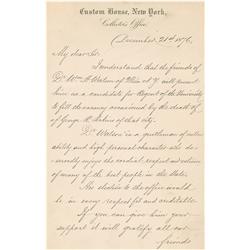 Custom House, New York,
Collector's Office,
December 21st 1876,
My dear Sir,
I understand that the friends of
Dr. Wm. H. Watson of Utica N.Y. will present
him as a candidate for Regent of the University
to fill the vacancy occasioned by the death of
of George H. Perkins of that city.
Dr. Watson is a gentleman of culture
ability and high personal character who de-
servedly enjoys the cordial respect and esteem
of many of the best people in the State.
His election to the office would be
in every respect fit and creditable.
If you can give him your
support it will gratify all our
friends